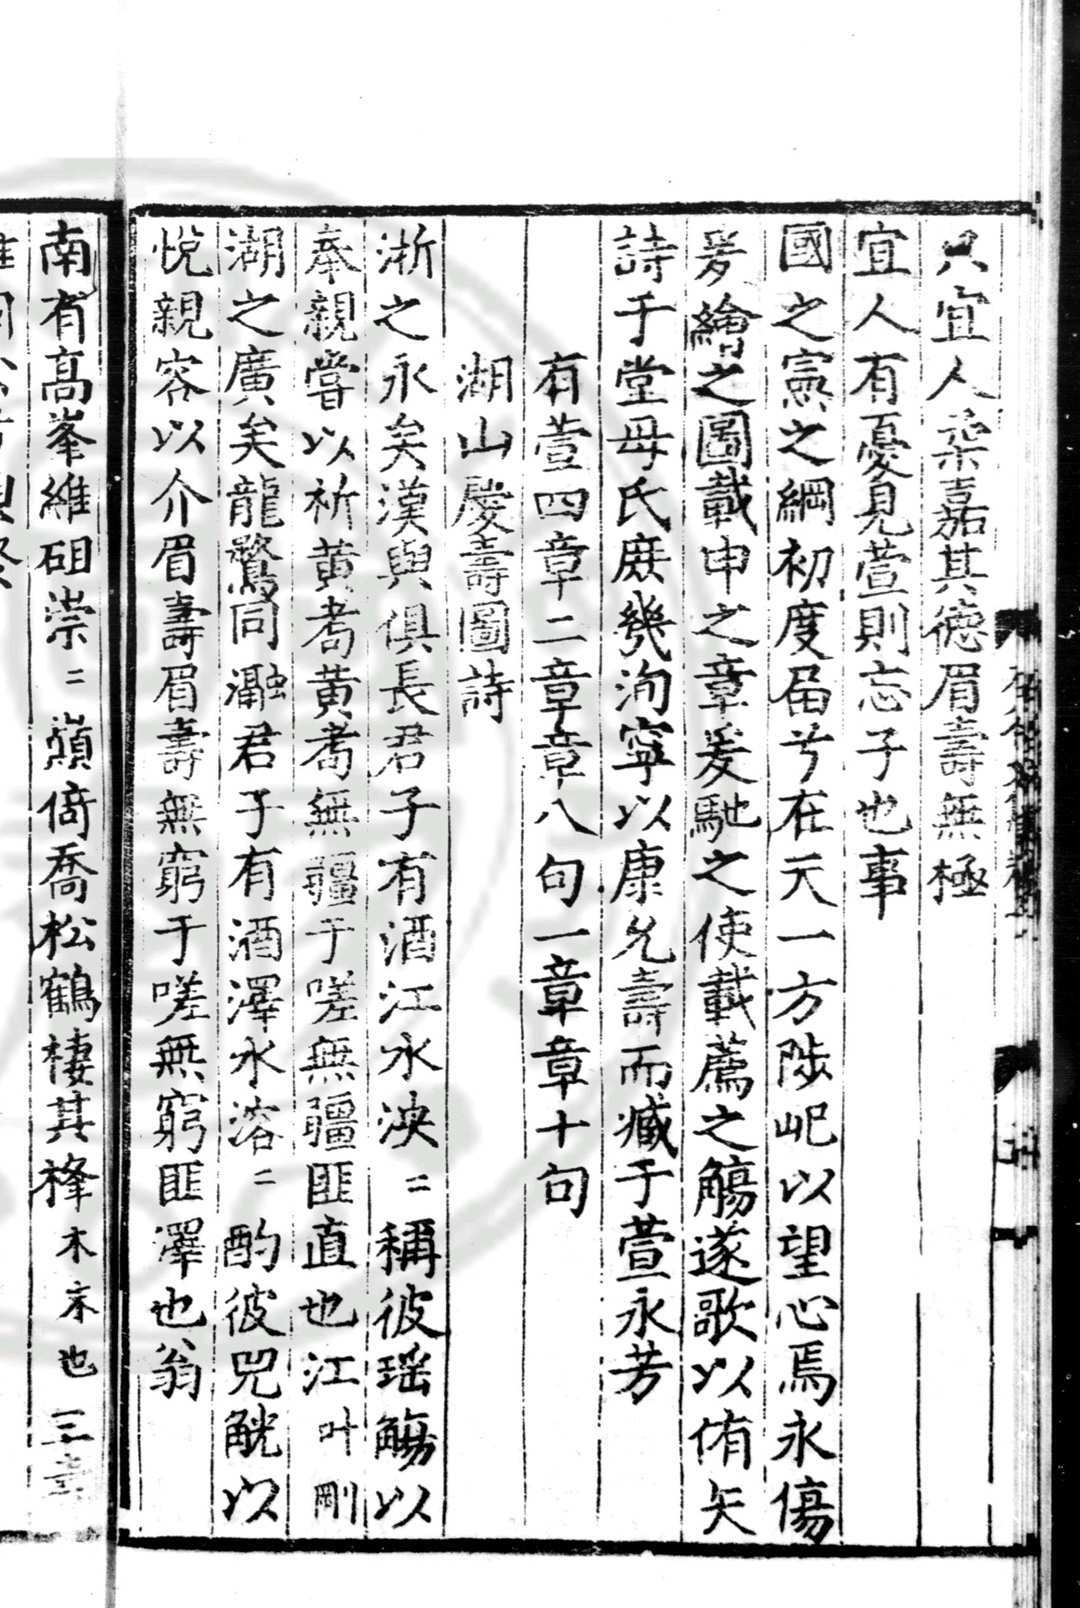 只宜人桑嘉其德眉壽無極
宜人有憂見萱則忘子也事
國之憲之綱初度届兮在天一方陟屺以望心焉永傷
爰繪之圖載申之章爰馳之使載薦之觴遂歌以侑矢
詩于堂母氏庶幾洵寧以康允壽而臧于萱永芳
有萱四章二章章八句一章章十句
湖山慶壽圖詩
浙之永矣漢與俱長君子有酒江水泱〻稱彼瑶觴以
奉親嘗以祈黄耇黄耇無疆于嗟無疆匪直也江叶剛
湖之廣矣龍鷔同瀜君子有酒澤水溶〻酌彼兕觥以
悅親容以介眉壽眉壽無窮于嗟無窮匪澤也翁
南有高峯維砠崇〻巔倚喬松鶴棲其桻木末也三壽